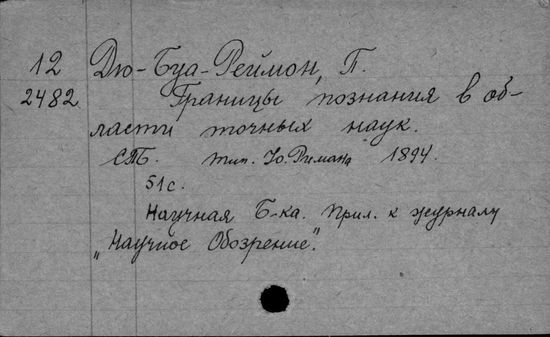 12 Дю-Буа-Реймон, П.
2482 Границы познания в об-
ласти точных наук.
СПБ. тип. Ю. Римана 1894.
51 с.
Научная Б-ка. Прил. к журналу
"Научное Обозрение".